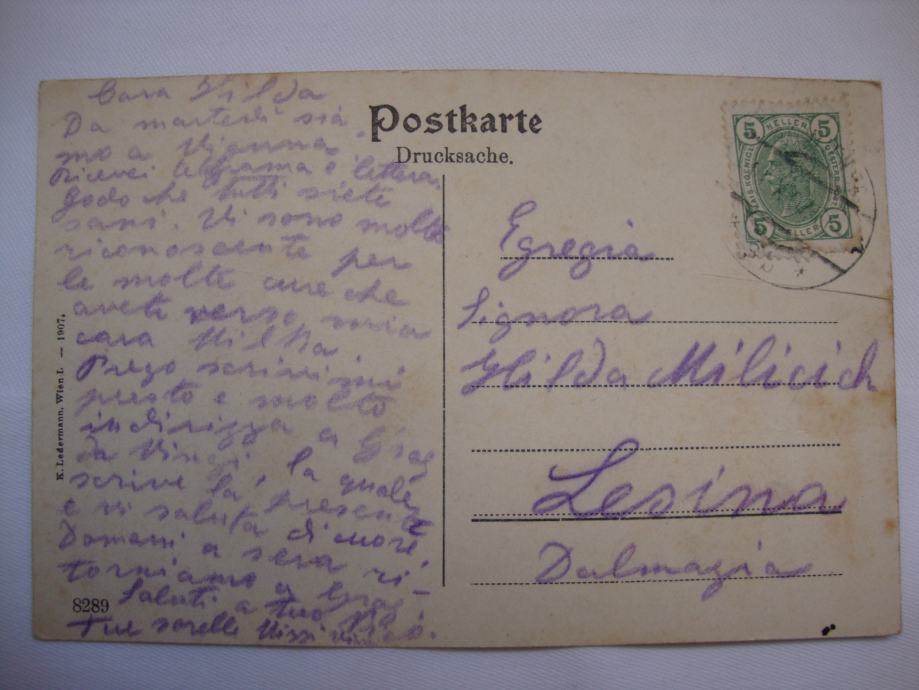 Cara Hilda
Da martedì sia
mo a Vienna.
Ricevei telegrama e lettera,
godo che tutti siete
sani. Vi sono molto
riconoscente per
le molte cure che
avete verso mia
cara Milka.
Prego scrivi mi
presto e molto
indirizza a Graz
da Vinzi, la quale
scrive la presente
e vi saluta di cuore.
Domani a sera ri-
torniamo a Graz
Saluti a tuo
Tue sorelle Missi
Postkarte
Drucksache.
5 HELLER 5
5 HELLER 5
Egregia
Signora
Hilda Milicich
Lesina
Dalmazia
K. Ledermann, Wien I. — 1907.
8289